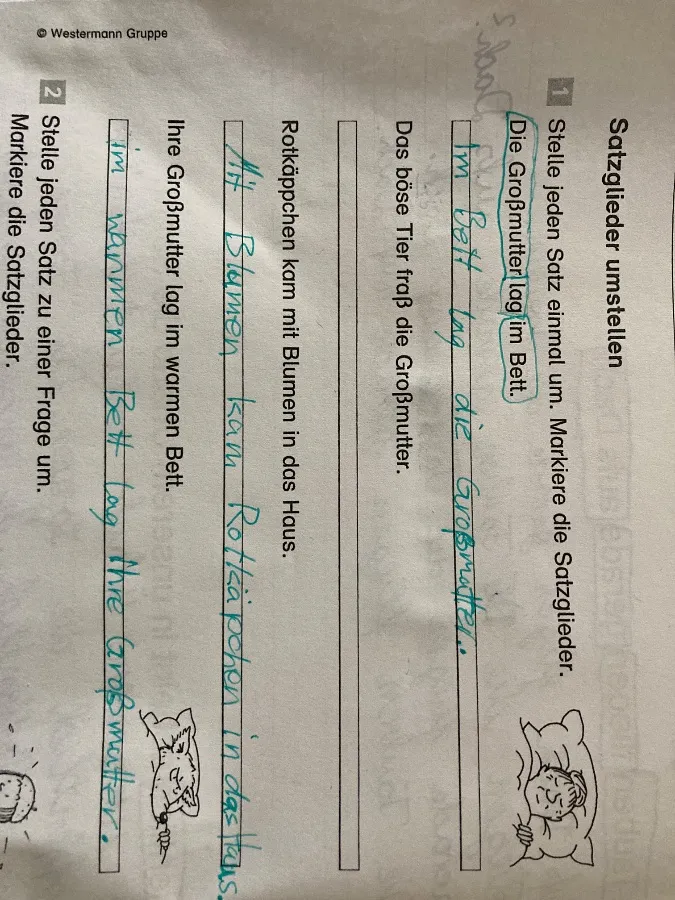 Satzglieder umstellen
1 Stelle jeden Satz einmal um. Markiere die Satzglieder.
Die Großmutter lag im Bett.
Im Bett lag die Großmutter.
Das böse Tier fraß die Großmutter.
Rotkäppchen kam mit Blumen in das Haus.
Mit Blumen kam Rotkäpchen in das Haus.
Ihre Großmutter lag im warmen Bett.
im warmen Bett lag Ihre Großmutter.
2 Stelle jeden Satz zu einer Frage um.
Markiere die Satzglieder.
© Westermann Gruppe